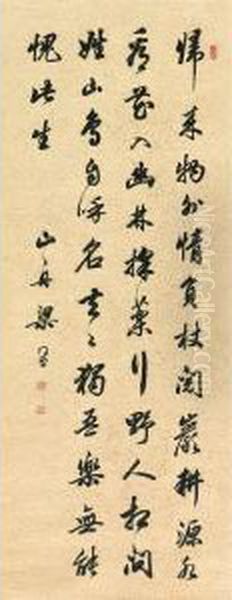 歸來物外情負杖閱巖耕源水
看花入幽林採藥行野人相問
姓山鳥自呼名去去獨吾樂無能
愧此生
山舟梁同書